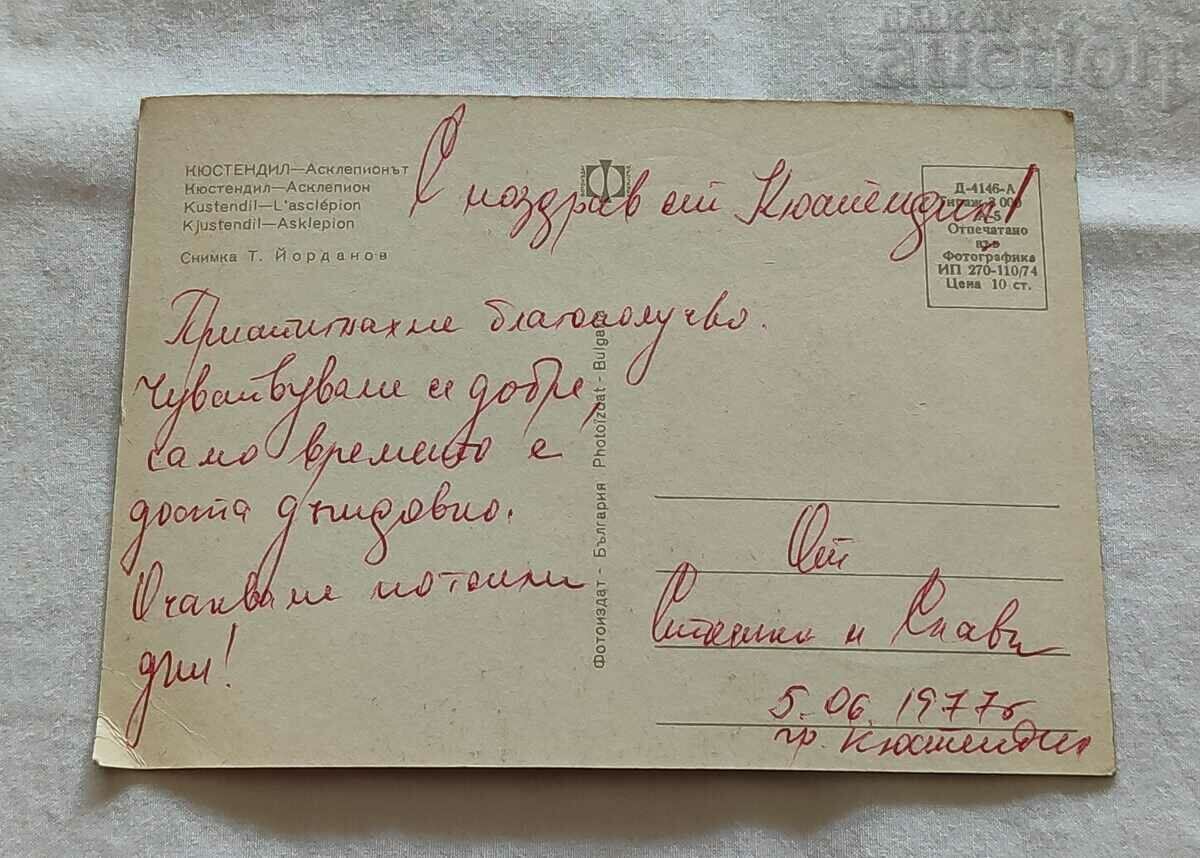 BALKAN
auction
КЮСТЕНДИЛ—Асклепионът
Кюстендил—Асклепион
Kustendil—L'asclépion
Kjustendil—Asklepion
Снимка Т. Йорданов
С поздрав от Кюстендил!
Д-4146-А
Тираж 3 000
А-5
Отпечатано
във
Фотографика
ИП 270-110/74
Цена 10 ст.
Пристигнахме благополучно.
Чувствуваме се добре,
само времето е
доста дъждовно.
Очакваме потопли
дни!
Фотоиздат - България Photoizdat - Bulgaria
От
и Слави
5.06.1977г
гр. Кюстендил